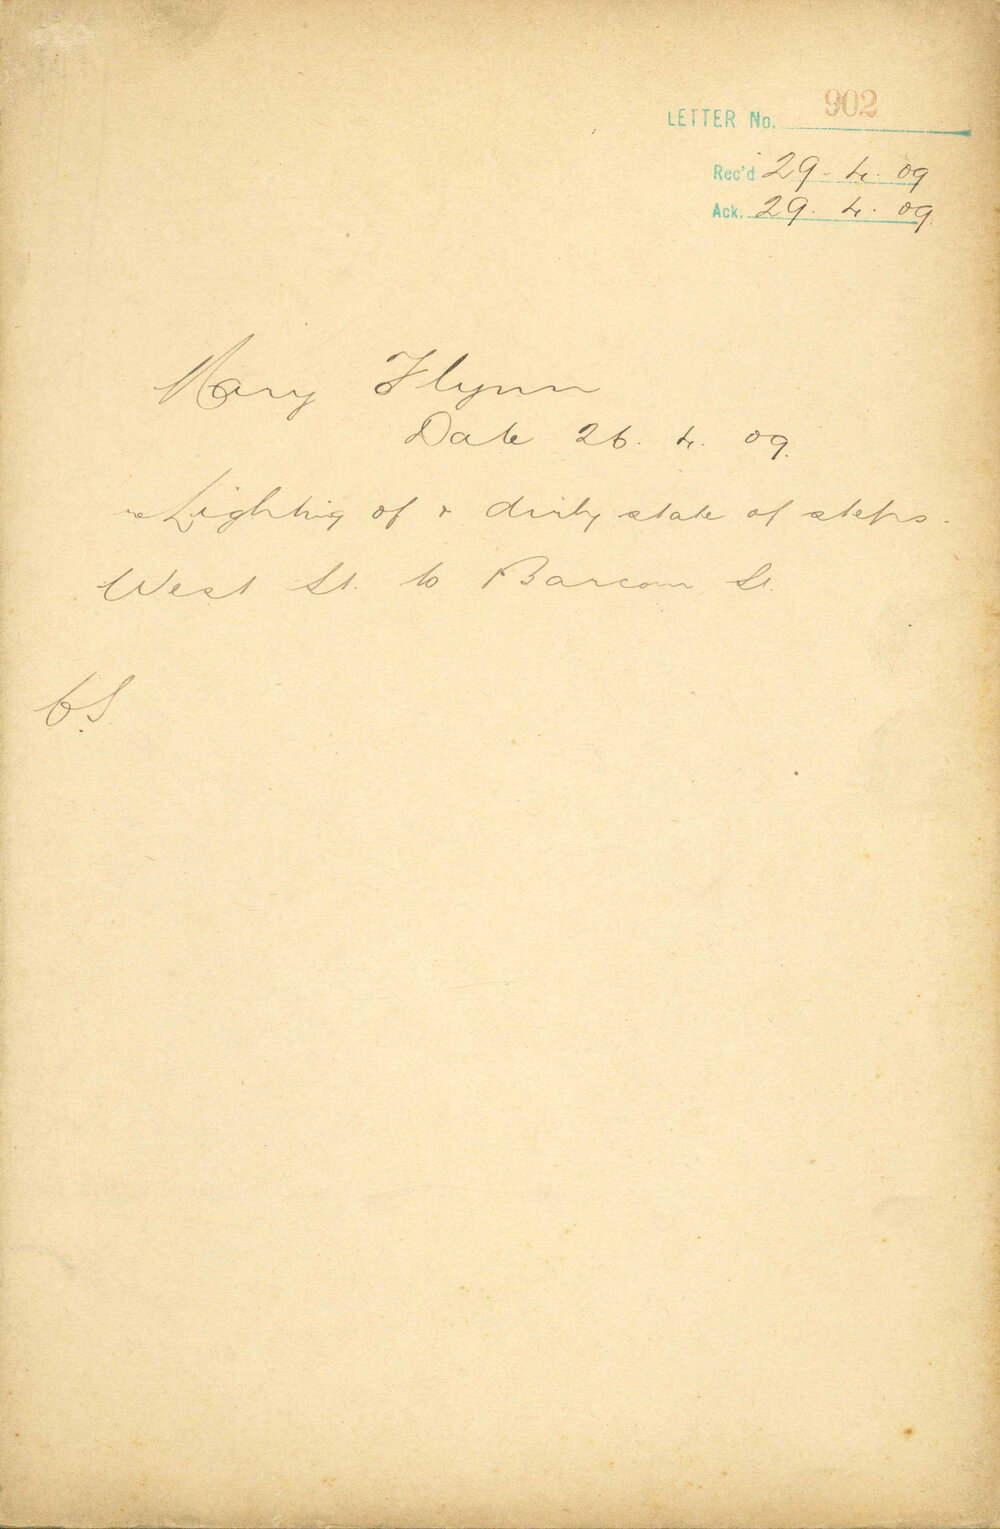 LETTER No. 902
Rec'd 29-4-09
Ack. 29.4.09.
Mary Flynn
Date 26.4.09.
re Lighting of & dirty state of steps.
West St. to Barcom St.
C.S.